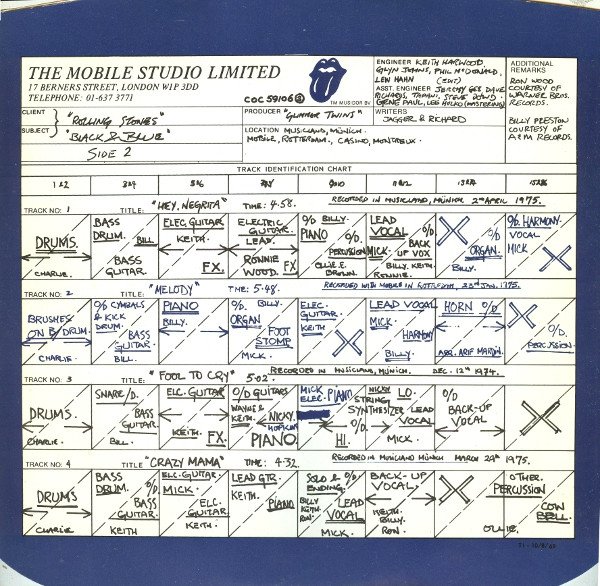 THE MOBILE STUDIO LIMITED
17 BERNERS STREET, LONDON W1P 3DD
TELEPHONE: 01-637 3771
TM MUSIDOR BV
COC 59106
ENGINEER KEITH HARWOOD
GLYN JOHNS, PHIL McDONALD,
LEW HAHN (EDIT)
ASST. ENGINEER JEREMY GEE DAVE
RICHARDS, TAPANI, STEVE DOWD
GENE PAUL, LEE HULKO (MASTERING)
WRITERS
JAGGER & RICHARD
ADDITIONAL
REMARKS
RON WOOD
COURTESY OF
WARNER BROS.
RECORDS.
BILLY PRESTON
COURTESY OF
A&M RECORDS.
CLIENT "ROLLING STONES"
SUBJECT "BLACK & BLUE"
SIDE 2
PRODUCER "GLIMMER TWINS"
LOCATION MUSICLAND, MÜNICH.
MOBILE, ROTTERDAM, CASINO, MONTREUX.
TRACK IDENTIFICATION CHART
1&2 3&4 5&6 7&8 9&10 11&12 13&14 15&16
TRACK NO: 1 TITLE: "HEY, NEGRITA" TIME: 4.58. RECORDED IN MUSICLAND, MÜNICH 2ND APRIL 1975.
DRUMS. CHARLIE.
BASS DRUM. BILL BASS GUITAR.
ELEC. GUITAR KEITH. FX.
ELECTRIC GUITAR. LEAD. RONNIE WOOD. FX
O/D BILLY. PIANO O/D PERCUSSION OLLIE E. BROWN.
LEAD VOCAL MICK. O/D BACK UP VOX BILLY, KEITH RONNIE.
O/D ORGAN. BILLY.
O/D. HARMONY. VOCAL MICK
TRACK NO: 2 TITLE: "MELODY" TIME: 5.48. RECORDED WITH MOBILE IN ROTTERDAM, 23RD JAN. 1975.
BRUSHES ON B/DRUM. CHARLIE.
O/D CYMBALS & KICK DRUM. BASS GUITAR. BILL.
PIANO BILLY.
O/D. BILLY. ORGAN FOOT STOMP MICK.
ELEC. GUITAR KEITH
LEAD VOCAL MICK. HARMONY BILLY.
HORN O/D ARR. ARIF MARDIN.
O/D. PERCUSSION
TRACK NO: 3 TITLE: "FOOL TO CRY" 5.02. RECORDED IN MUSICLAND, MÜNICH. DEC. 12TH 1974.
DRUMS. CHARLIE.
SNARE/D. BASS GUITAR. BILL.
ELC. GUITAR KEITH. FX.
O/D GUITARS WAYNE & KEITH. NICKY HOPKINS PIANO
MICK ELEC. PIANO O/D. HI.
NICKY LO. STRING SYNTHESIZER LEAD VOCAL MICK.
O/D BACK-UP VOCAL
TRACK NO: 4 TITLE "CRAZY MAMA" TIME: 4.32. RECORDED IN MUSICLAND MÜNICH MARCH 29TH 1975.
DRUMS CHARLIE
BASS DRUM. O/D. BASS GUITAR. KEITH
ELC. GUITAR MICK. ELC. GUITAR KEITH.
LEAD GTR. KEITH. PIANO
SOLO & O/D ENDING. BILLY KEITH RON. LEAD VOCAL MICK
BACK-UP VOCAL. KEITH. BILLY. RON.
OTHER. PERCUSSION COW BELL. OLLIE.